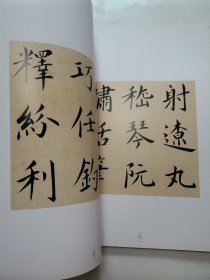 射遼丸
嵇琴阮
嘯恬筆
巧任釣
釋紛利